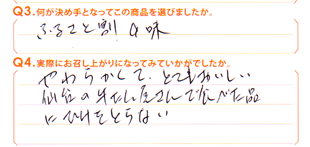 Q3.何が決め手となってこの商品を選びましたか。
ふるさと割 の味
Q4.実際にお召し上がりになってみていかがでしたか。
やわらかくて、とてもおいしい
仙台の牛たん屋さんで食べた品
にひけをとらない